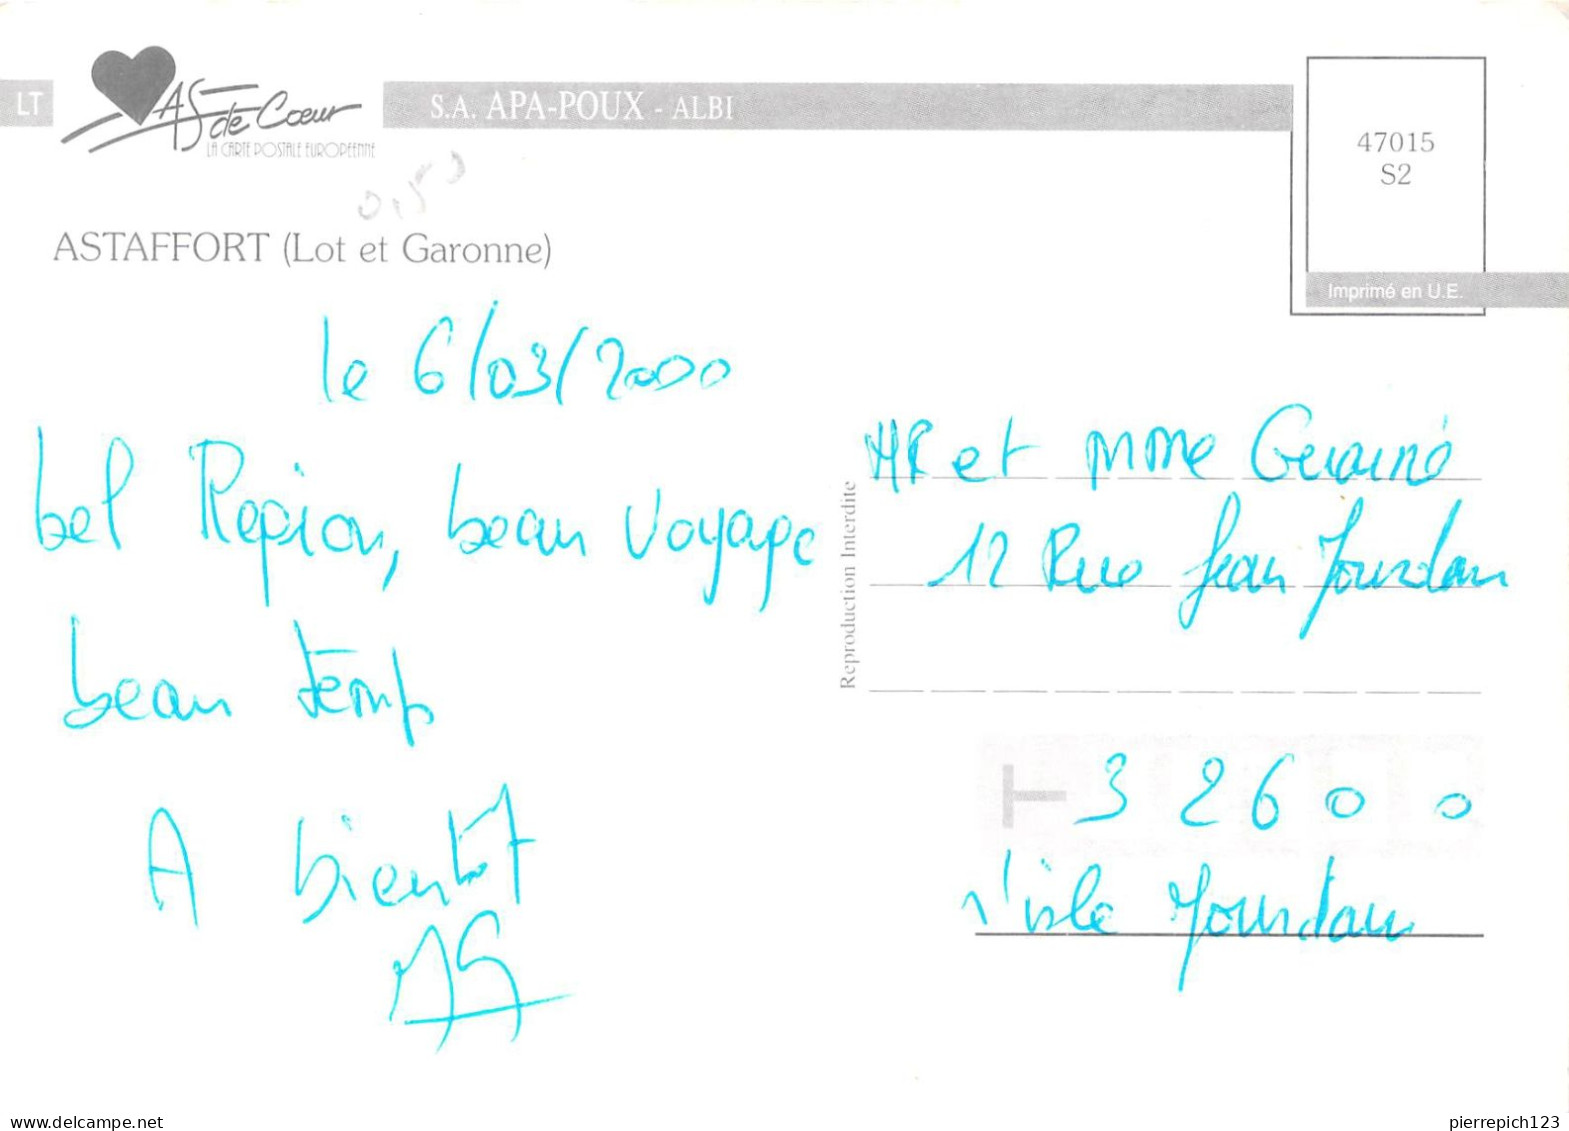 LT
As de Cœur
LA CARTE POSTALE EUROPÉENNE
S.A. APA-POUX - ALBI
47015
S2
Imprimé en U.E.
0,50
ASTAFFORT (Lot et Garonne)
le 6/03/2000
bel Region, beau voyage
beau temp
A bientot
Reproduction Interdite
MR et MMe
12 Rue Jean Jourdan
32600
l'isle Jourdan
www.delcampe.net
pierrepich123